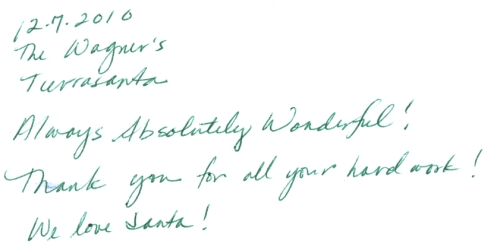 12.7.2010
The Wagner's
Tierrasanta
Always Absolutely Wonderful!
Thank you for all your hard work!
We love Santa!